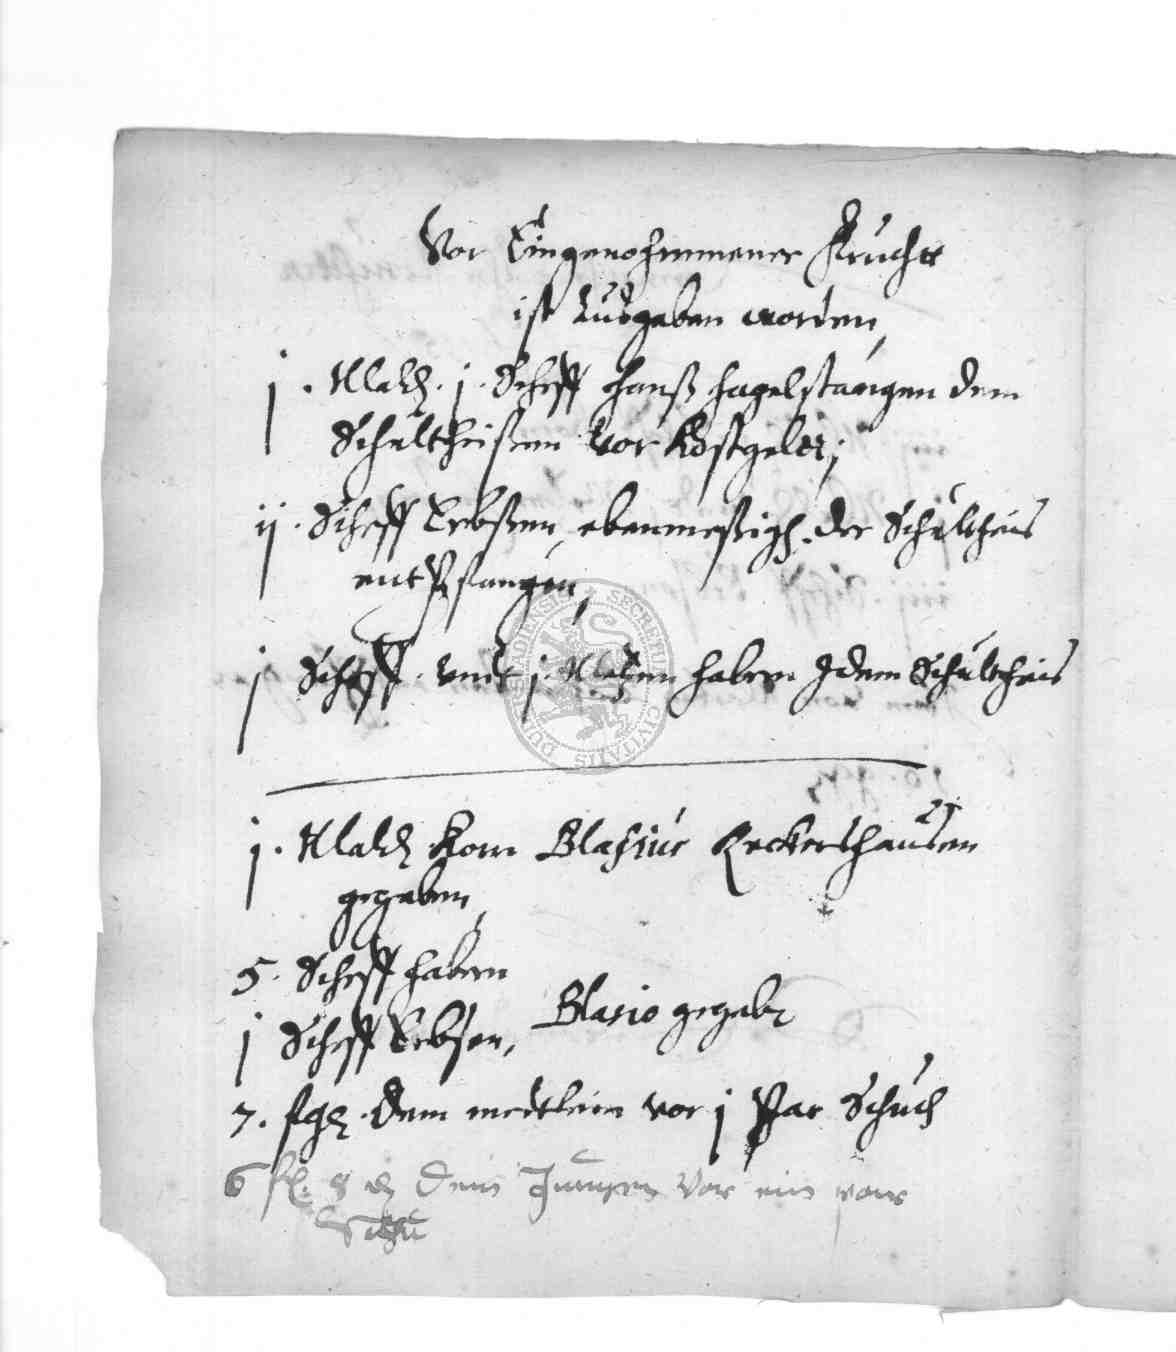 Von Eingenohmmener Frucht
ist Ausgeben worden,
j. Mald. j. Scheff hanß hagelstangen dem
Schultheissen vor Kostgeldt,
ij. Scheff Erbßen, ebenmeßigh der Schultheis
entpfangen,
j Scheff. undt j. Malden habern Idem Schultheis
j. Mald Korn Blasius Reckershausen
gegeben,
5. Scheff habern
j Scheff Erbsen,
Blasio gegeben
7. dem medtlein vor j Par Schuch
6 fl. 8 dem Jungen vor ein paar
Schu
SECRETUM CIVITATIS